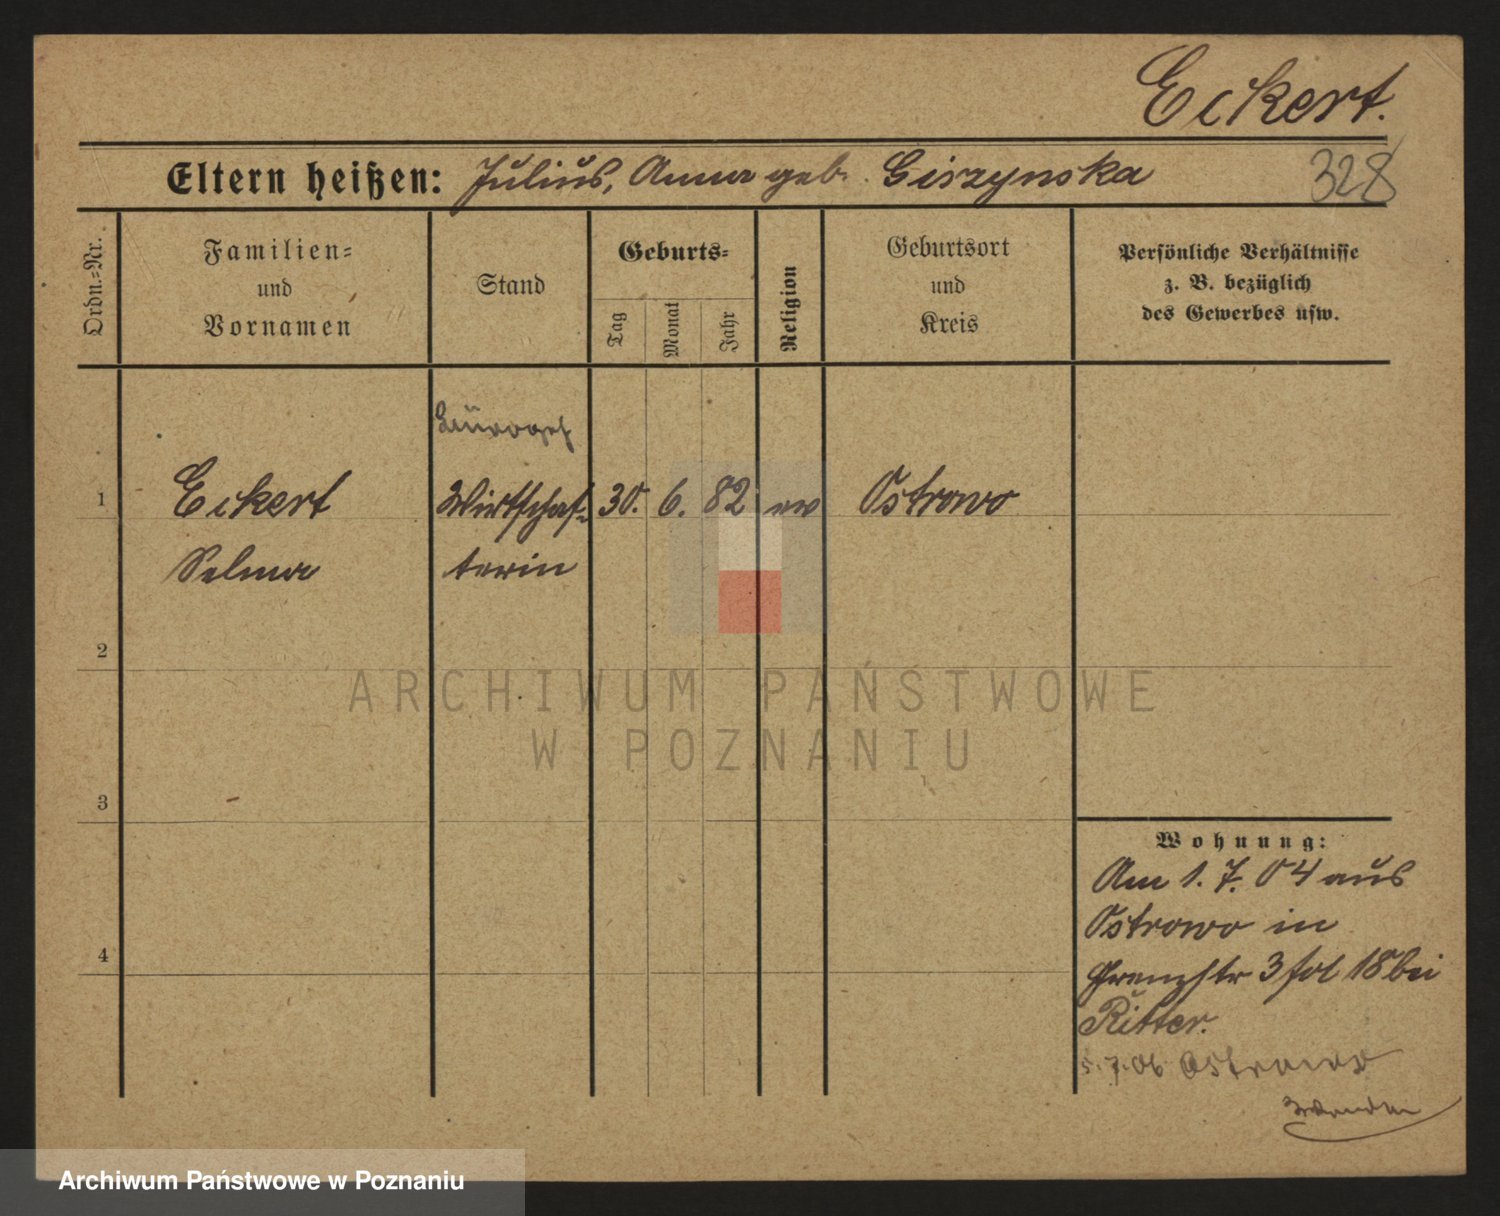 Eckert.
Eltern heißen: Julius, Anna geb. Giszynska
328
Ordn.-Nr.
Familien-
und
Vornamen
Stand
Geburts-
Tag
Monat
Jahr
Religion
Geburtsort
und
Kreis
Persönliche Verhältnisse
z. B. bezüglich
des Gewerbes usw.
1 Eckert Wirtschaf- 30. 6. 82 ev Ostrowo
Selma terin
2
ARCHIWUM PAŃSTWOWE
W POZNANIU
3
4
Wohnung:
Am 1. 7. 04 aus
Ostrowo in
Grenzstr 3 fol 18 bei
Ritter.
5.7.06 Ostrowo
Archiwum Państwowe w Poznaniu